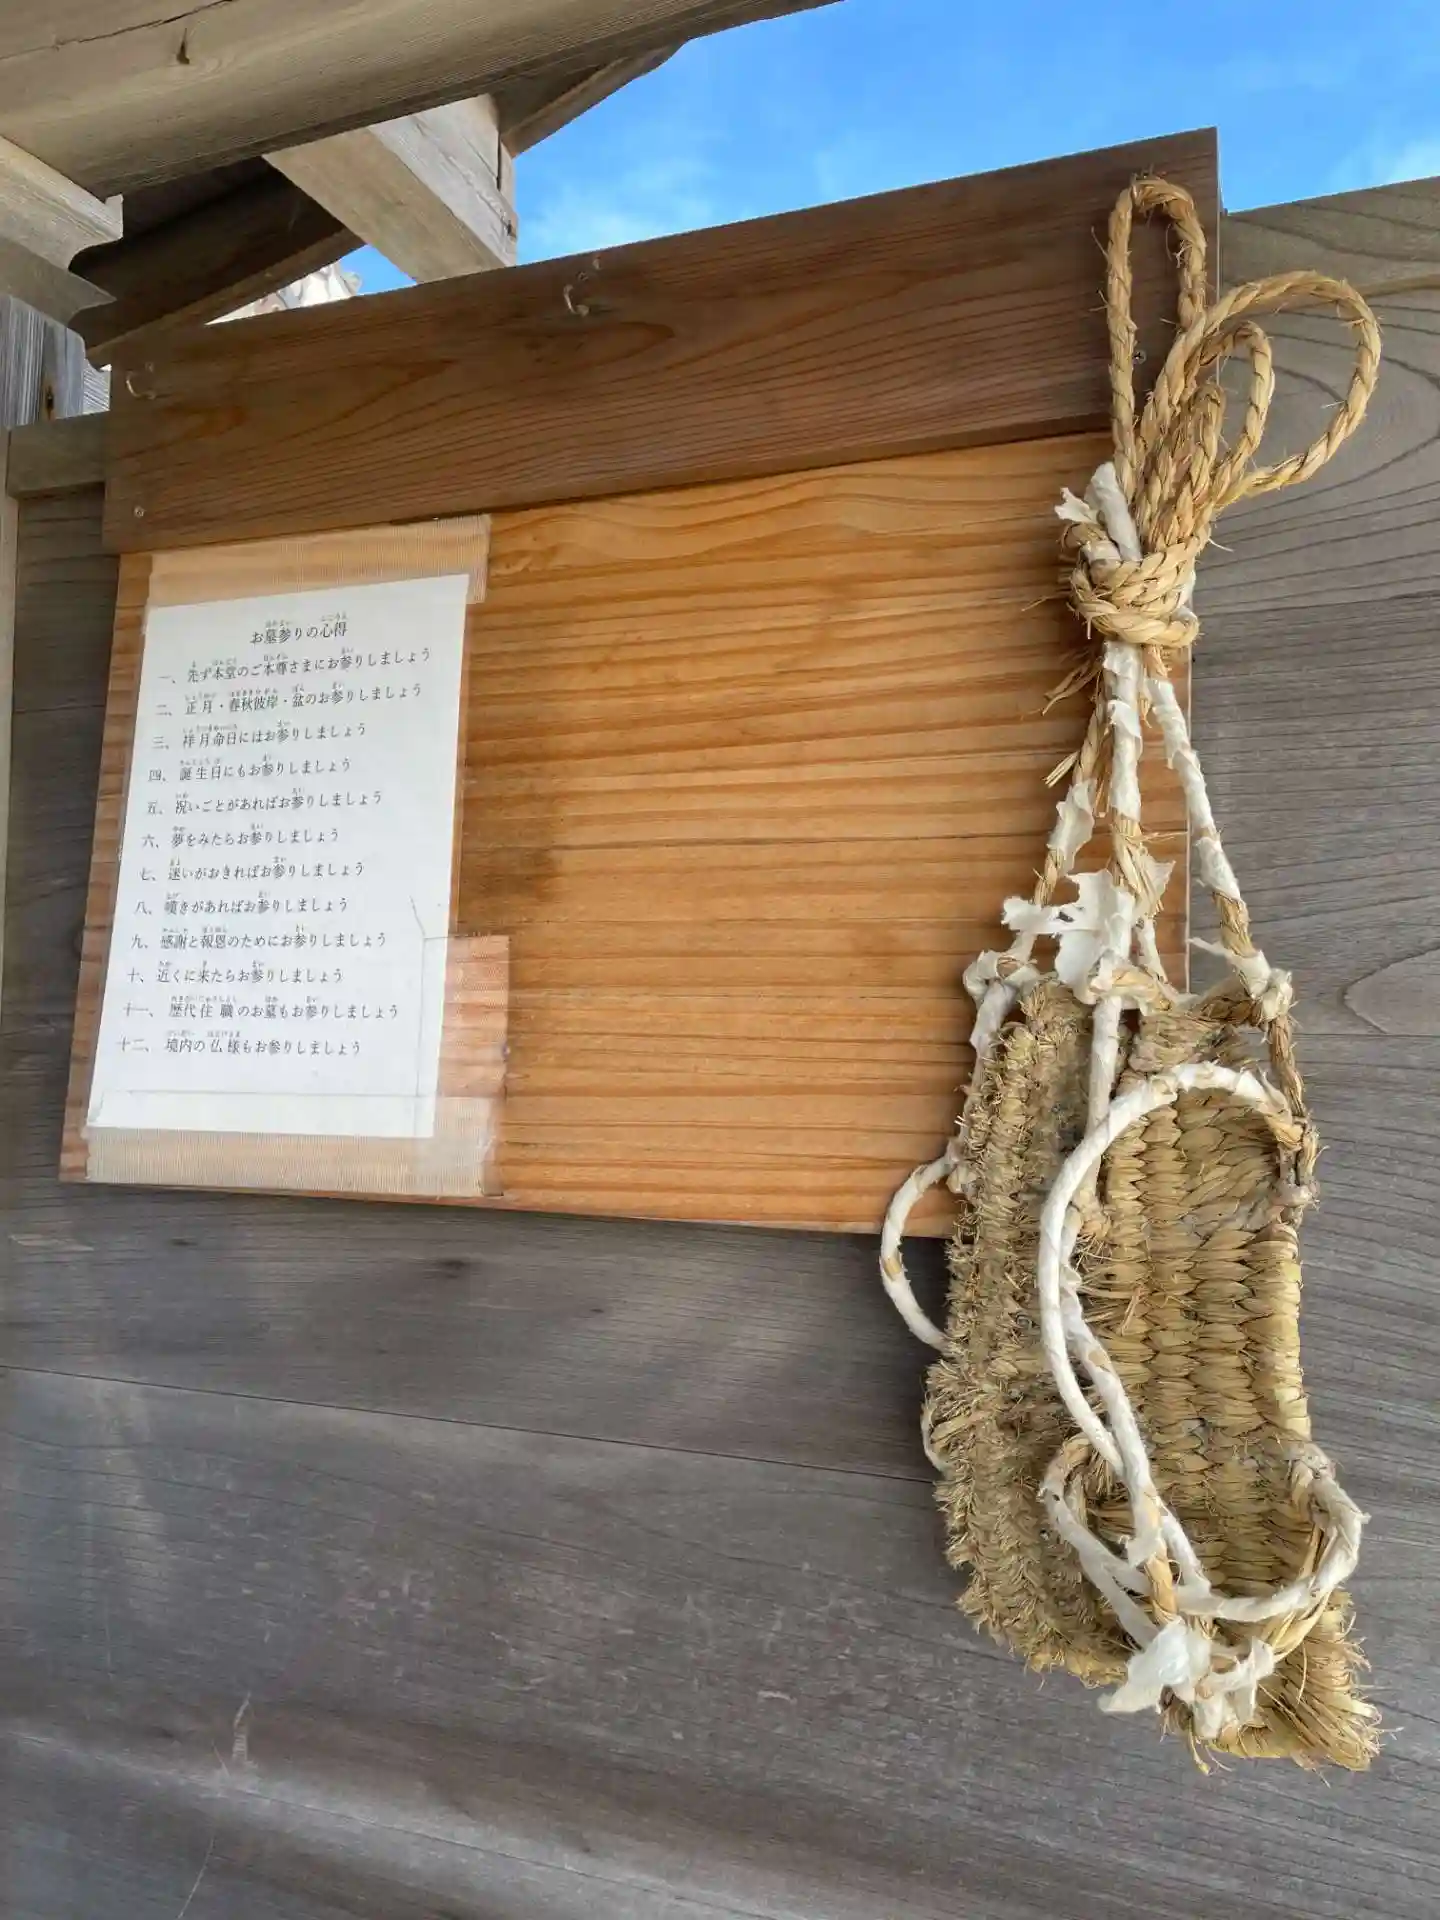 お墓参りの心得
一、先ず本堂のご本尊さまにお参りしましょう
二、正月・春秋彼岸・盆のお参りしましょう
三、祥月命日にはお参りしましょう
四、誕生日にもお参りしましょう
五、祝いごとがあればお参りしましょう
六、夢をみたらお参りしましょう
七、迷いがおきればお参りしましょう
八、嘆きがあればお参りしましょう
九、感謝と報恩のためにお参りしましょう
十、近くに来たらお参りしましょう
十一、歴代住職のお墓もお参りしましょう
十二、境内の仏様もお参りしましょう